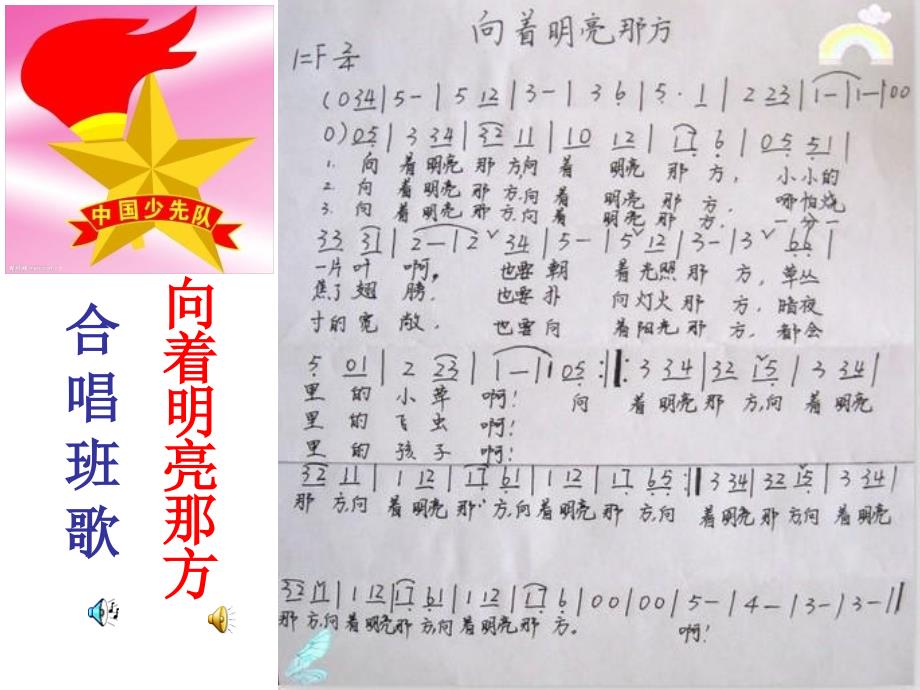 中国少先队
合唱班歌
向着明亮那方
向着明亮那方
1=F 2/4
(0 34 | 5 - | 5 12 | 3 - | 3 6 | 5 · 1 | 2 23 | 1 - | 1 - | 0 0
0) 05 | 3 34 | 32 11 | 10 12 | 17 6 | 05 51 |
1. 向 着明亮 那 方,向 着 明亮 那 方, 小小的
2. 向 着明亮 那 方,向 着 明亮 那 方, 哪怕烧
3. 向 着明亮 那 方,向 着 明亮 那 方, 一分一
33 31 | 2 - | 2 ˇ 34 | 5 - | 5 ˇ 12 | 3 - | 3 ˇ 66 |
一片叶 啊, 也要朝 着光照那 方, 草丛
焦了翅膀, 也要扑 向灯火那 方, 暗夜
寸的宽敞, 也要向 着阳光那 方, 都会
5 01 | 2 23 | 1 - | 1 05 :‖: 3 34 | 32 15 | 3 34 |
里 的 小 草 啊! 向 着明亮 那 方,向 着明亮
里 的 飞 虫 啊!
里 的 孩 子 啊!
32 11 | 1 12 | 17 61 | 1 12 | 17 65 :‖ 3 34 | 32 15 | 3 34 |
那 方,向 着明亮 那 方,向 着明亮 那 方,向 着明亮 那 方,向 着明亮
32 11 | 1 12 | 17 61 | 1 12 | 17 6 | 0 0 | 0 0 | 5 - | 4 - | 3 - | 3 - ‖
那 方,向 着明亮 那 方,向 着明亮 那 方。 啊!